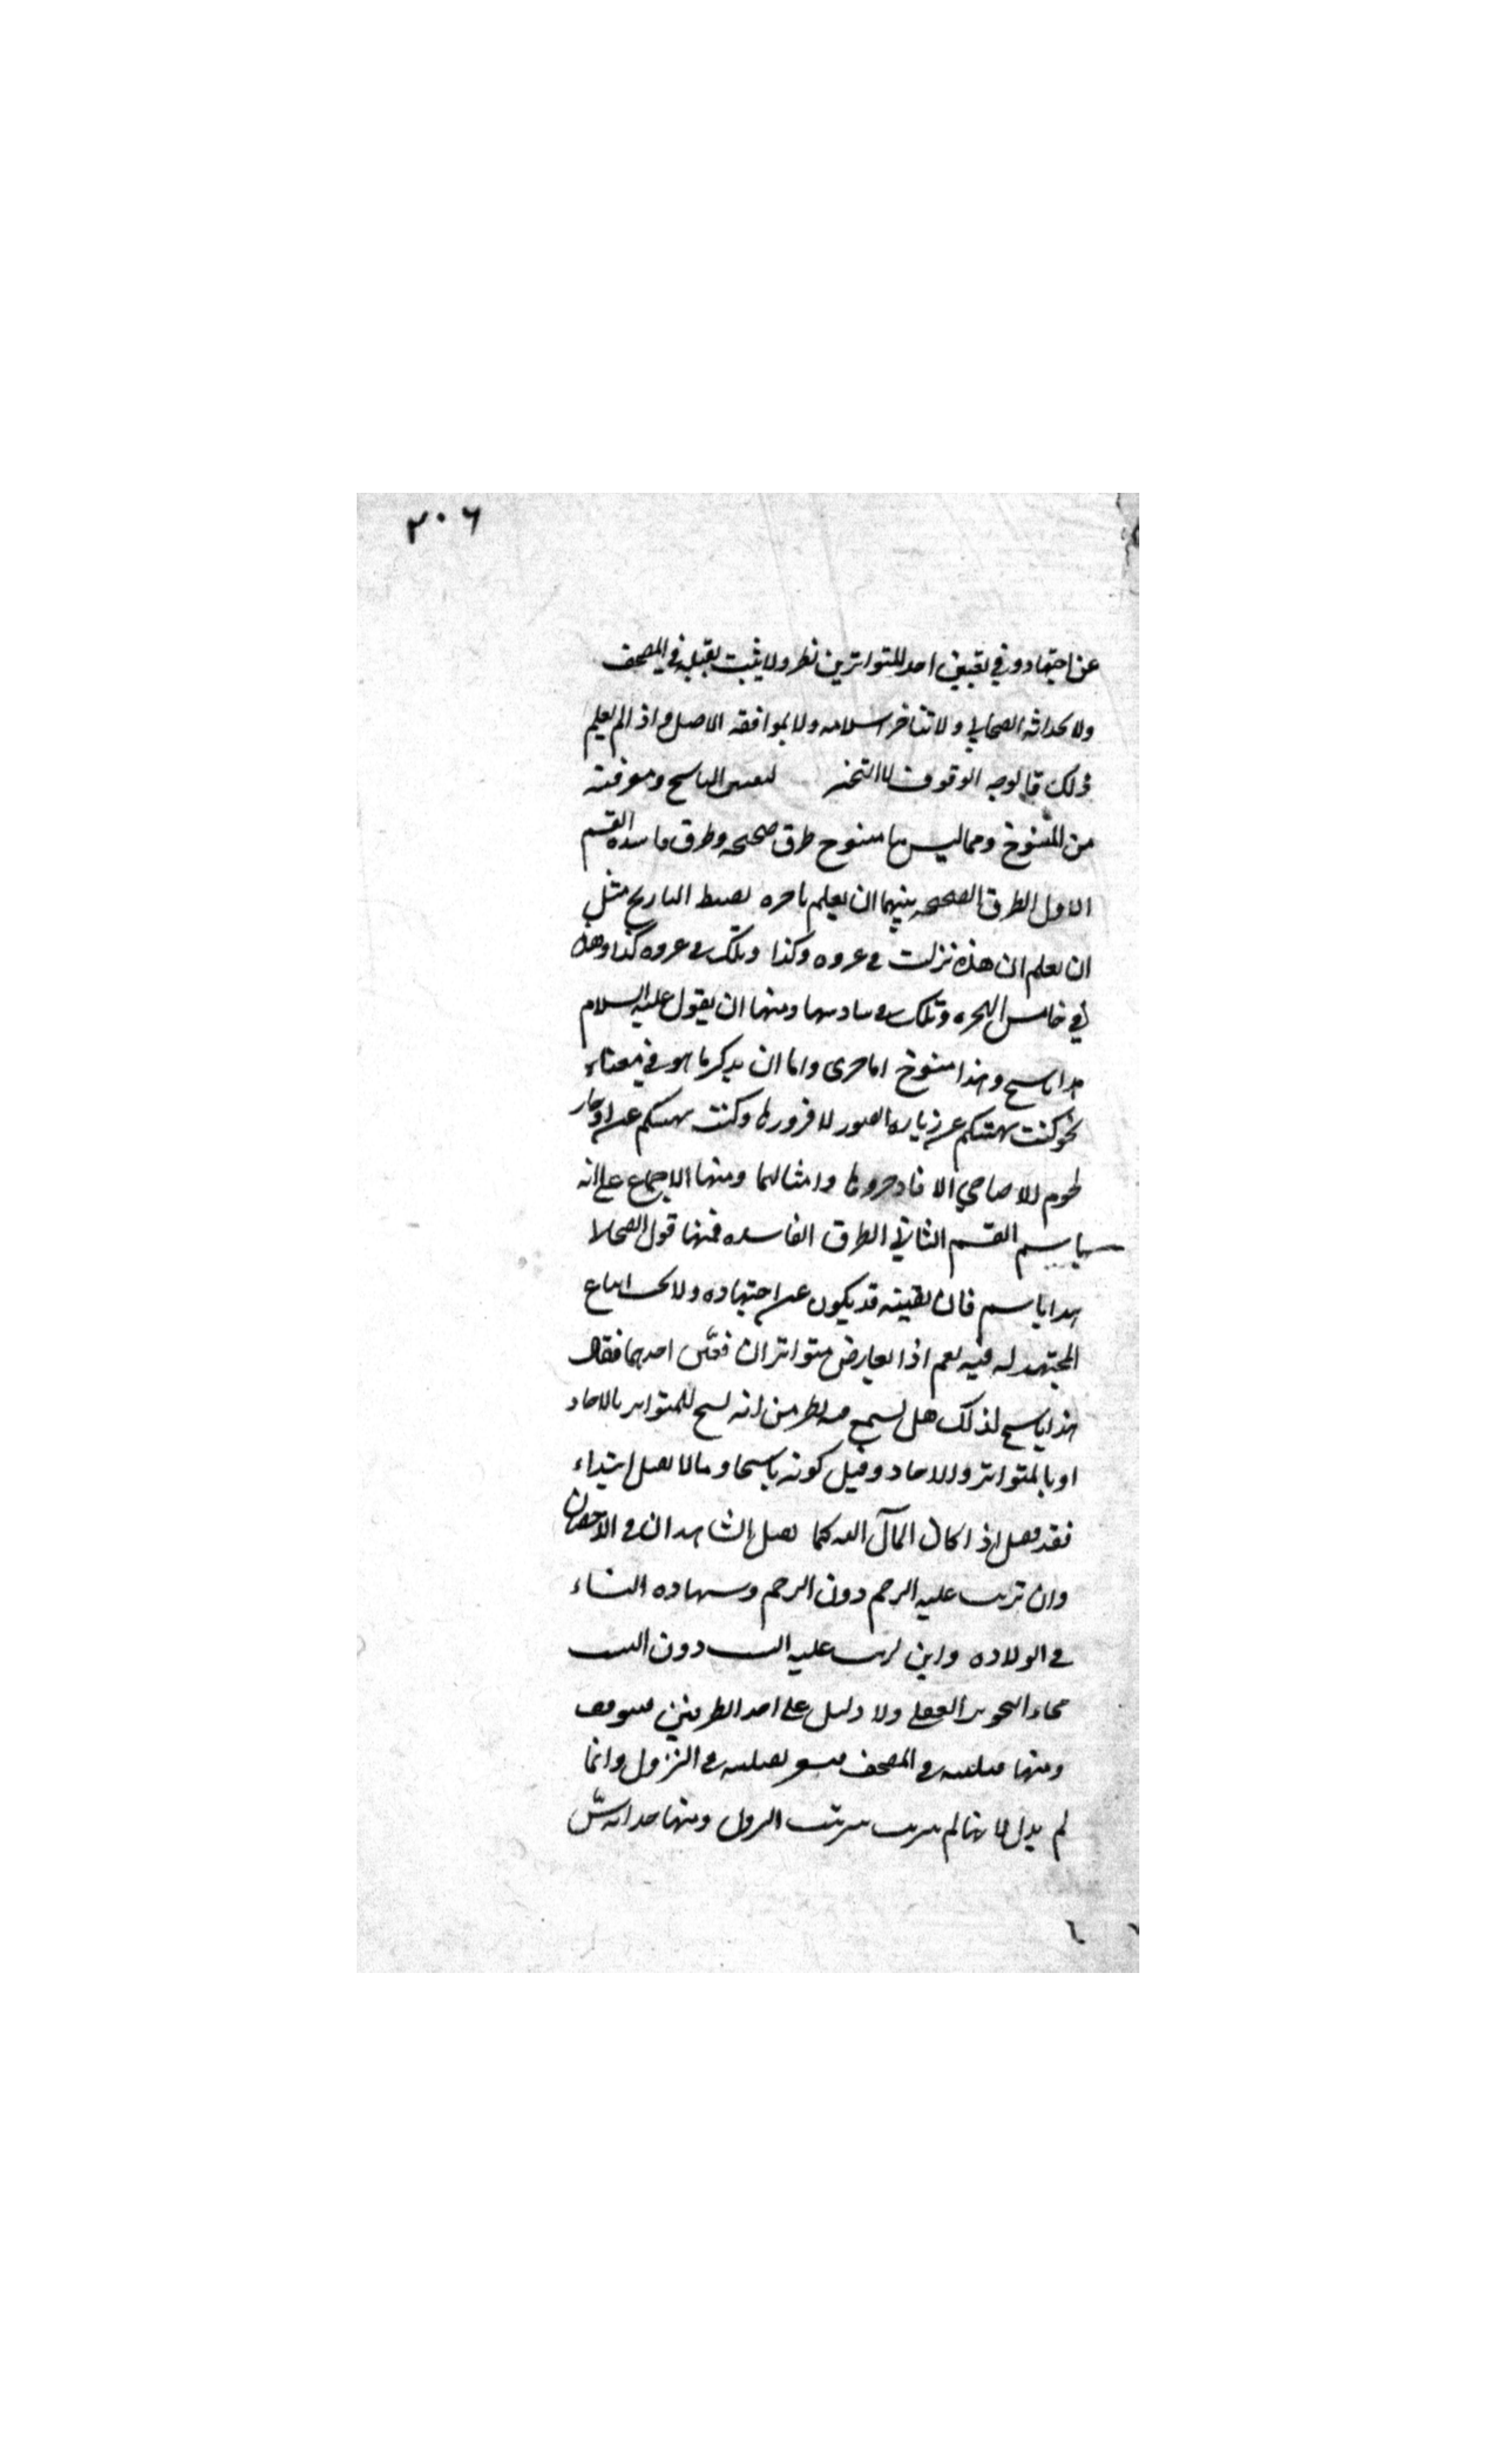 ٢٠٦
عن اجتهاد وفي تعيين احد المتواترين نظر ولا يثبت بقبليه في المصحف
ولا بحداثه الصحابي ولا بتاخر اسلامه ولا بموافقه الاصل واذا لم يعلم
ذلك فالوجه الوقوف لا التخير لتعيين الناسخ ومعرفته
من المنسوخ ومما ليس بمنسوخ طرق صحيحه وطرق فاسده القسم
الاول الطرق الصحيحه منها ان يعلم تاخره بضبط التاريخ مثل
ان يعلم ان هذه نزلت في غزوه وكذا وتلك في غزوه كذا وهذه
في خامس الهجره وتلك في سادسها ومنها ان يقول عليه السلام
هذا ناسخ وهذا منسوخ اما صرى واما ان يذكر ما هو في معناه
نحو كنت نهيتكم عن زياره القبور الا فزوروها وكنت نهيتكم عن ادخار
لحوم الاضاحي الا فادخروها وامثالهما ومنها الاجماع على انه
ناسخ القسم الثاني الطرق الفاسده فمنها قول الصحابي
هذا ناسخ فان تعيينه قد يكون عن اجتهاده ولا يجب اتباع
المجتهد له فيه نعم اذا تعارض متواتران فعين احدهما فقال
هذا ناسخ لذلك هل يسمع فيه نظر من انه نسخ للمتواتر بالاحاد
او بالمتواتر والاحاد دليل كونه ناسخا وما لا يقبل ابتداء
فقد يقبل اذا كان المآل اليه كما يقبل الشاهدان في الاحصان
وان ترتب عليه الرجم دون الرجم وشهاده النساء
في الولاده وان ترتب عليه النسب دون النسب
فجاء التجويز العقلي ولا دليل على احد الطرفين فيتوقف
ومنها قبليته في المصحف قبليته في النزول وانما
لم يدل لانها لم ترتب ترتيب النزول ومنها حداثه سن